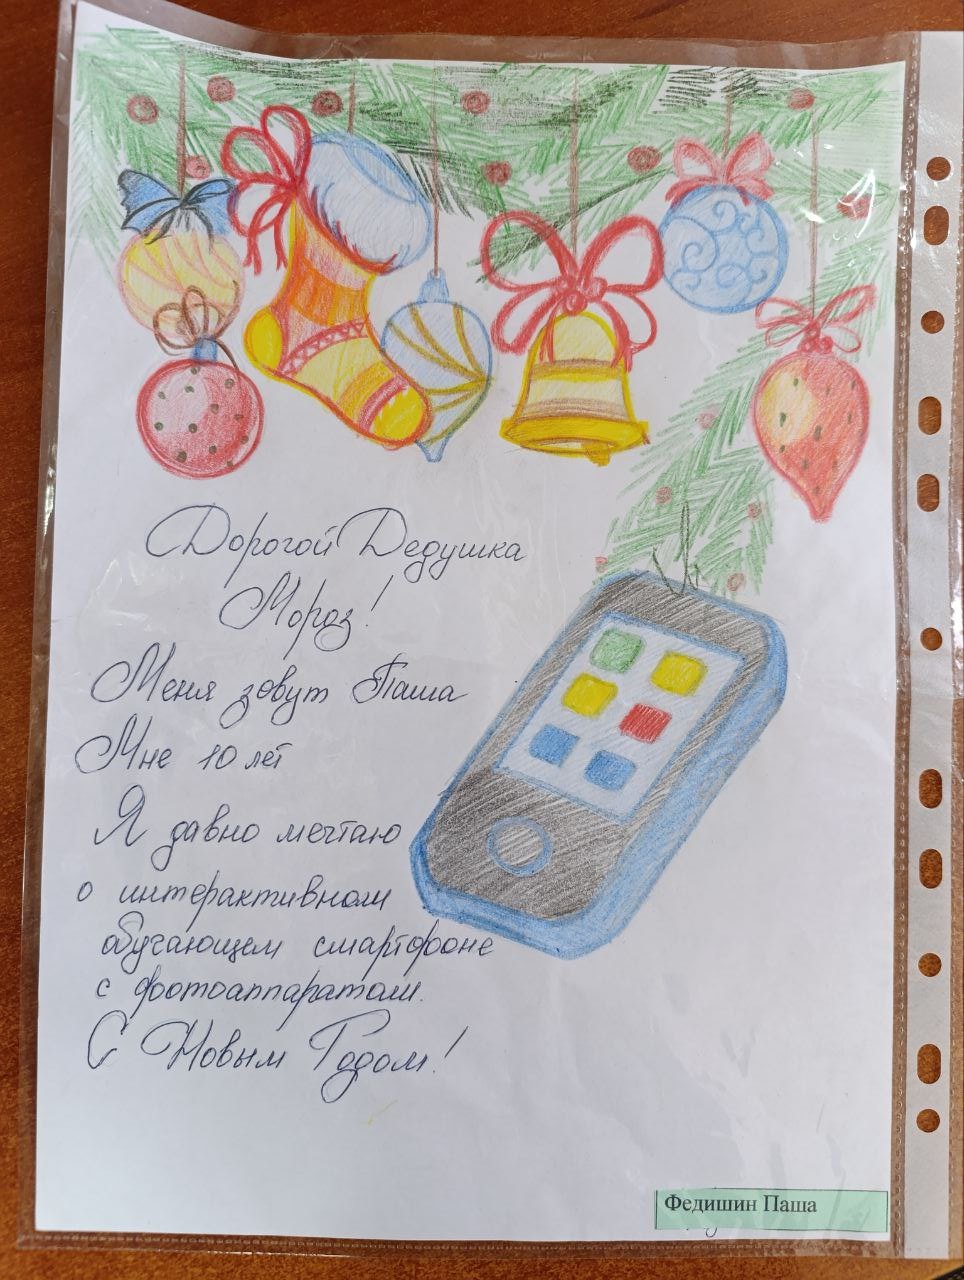 Дорогой Дедушка
Мороз!
Меня зовут Паша
Мне 10 лет
Я давно мечтаю
о интерактивном
обучающем смартфоне
с фотоаппаратом.
С Новым Годом!
Федишин Паша